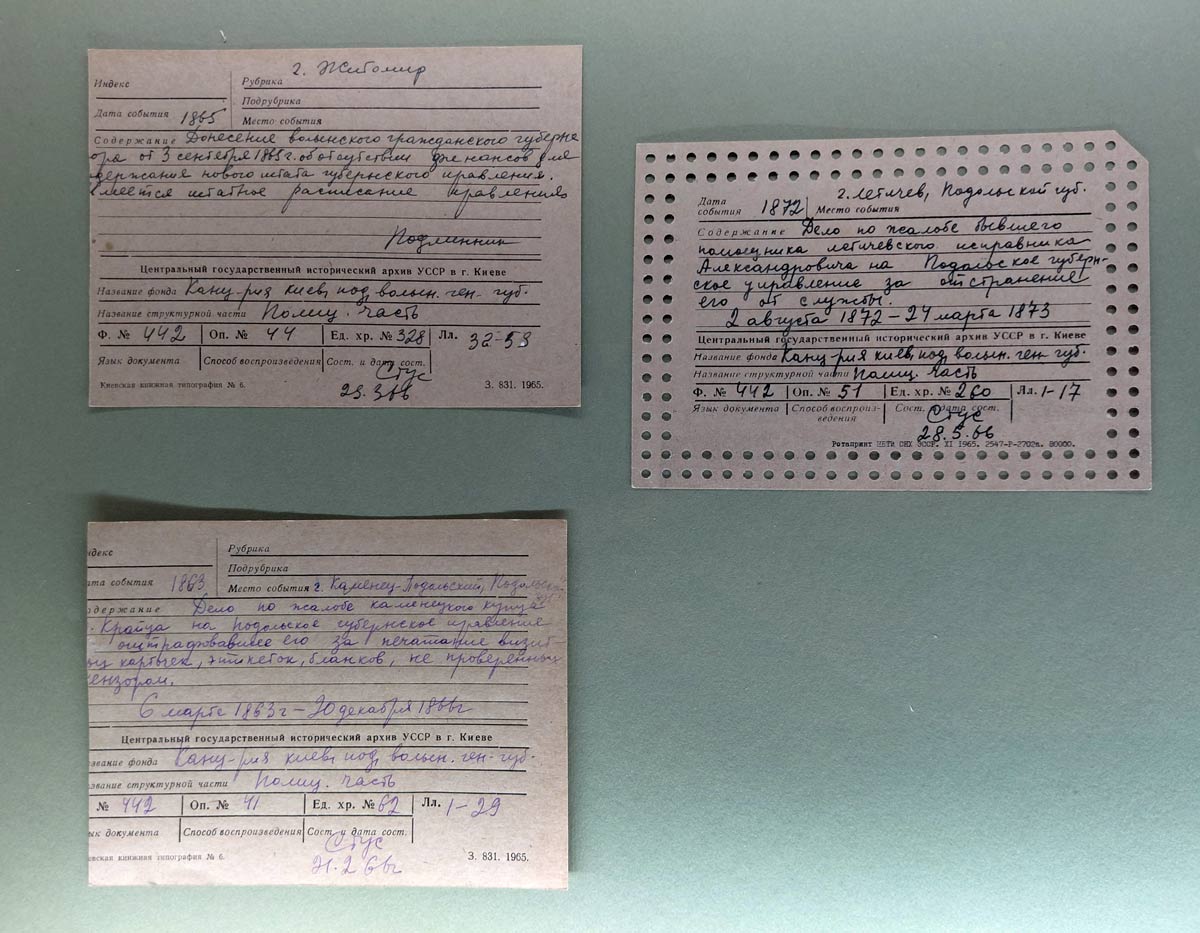 г. Житомир
Индекс
Рубрика
Подрубрика
Дата события 1865
Место события
Содержание Донесение волынского гражданского губерна
ора от 3 сентября 1865 г. об отсутствии финансов для
держания нового штата губернского правления.
меется штатное расписание правления
Подлинник
Центральный государственный исторический архив УССР в г. Киеве
Название фонда Канц-рия киев, под, волын. ген- губ.
Название структурной части Полиц. часть
Ф. № 442 Оп. № 44 Ед. хр. № 328 Лл. 32-53
Язык документа Способ воспроизведения Сост. и дата сост.
Стус
Киевская книжная типография № 6. З. 831. 1965.
г. Летичев, Подольской губ.
Дата
события 1872 Место события
Содержание Дело по жалобе бывшего
помощника летичевского исправника
Александровича на Подольское губерн-
ское управление за отстранение
его от службы.
2 августа 1872 – 24 марта 1873
Центральный государственный исторический архив УССР в г. Киеве
Название фонда Канц-рия киев, под, волын. ген- губ.
Название структурной части Полиц. часть
Ф. № 442 Оп. № 51 Ед. хр. № 260 Лл. 1-17
Язык документа Способ воспроиз-
ведения Сост. и дата сост.
Стус
28.5.66
Ротапринт ЦБТИ СНХ ЭССР. XI 1965. 2547-Р-2702а. 80000.
ндекс
Рубрика
Подрубрика
ата события 1863
Место события г. Каменец-Подольский, Подольск
одержание Дело по жалобе каменецкого купца
. Крайза на Подольское губернское правление
оштрафовавшее его за печатание визит-
ых карточек, этикеток, бланков, не проверенных
ензором.
6 марта 1863 г – 20 декабря 1866 г
Центральный государственный исторический архив УССР в г. Киеве
звание фонда Канц-рия киев, под, волын. ген- губ.
звание структурной части Полиц. часть
№ 442 Оп. № 41 Ед. хр. № 62 Лл. 1-29
ык документа Способ воспроизведения Сост. и дата сост.
Стус
евская книжная типография № 6. З. 831. 1965.